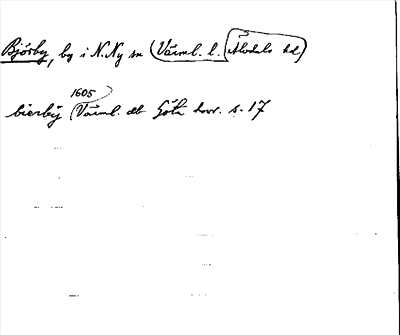 Bjørby, by i N. Ny sn (Värml. l. Älvdals hd)
1605
bierbÿ (Värml. et Göta hovr. s. 17